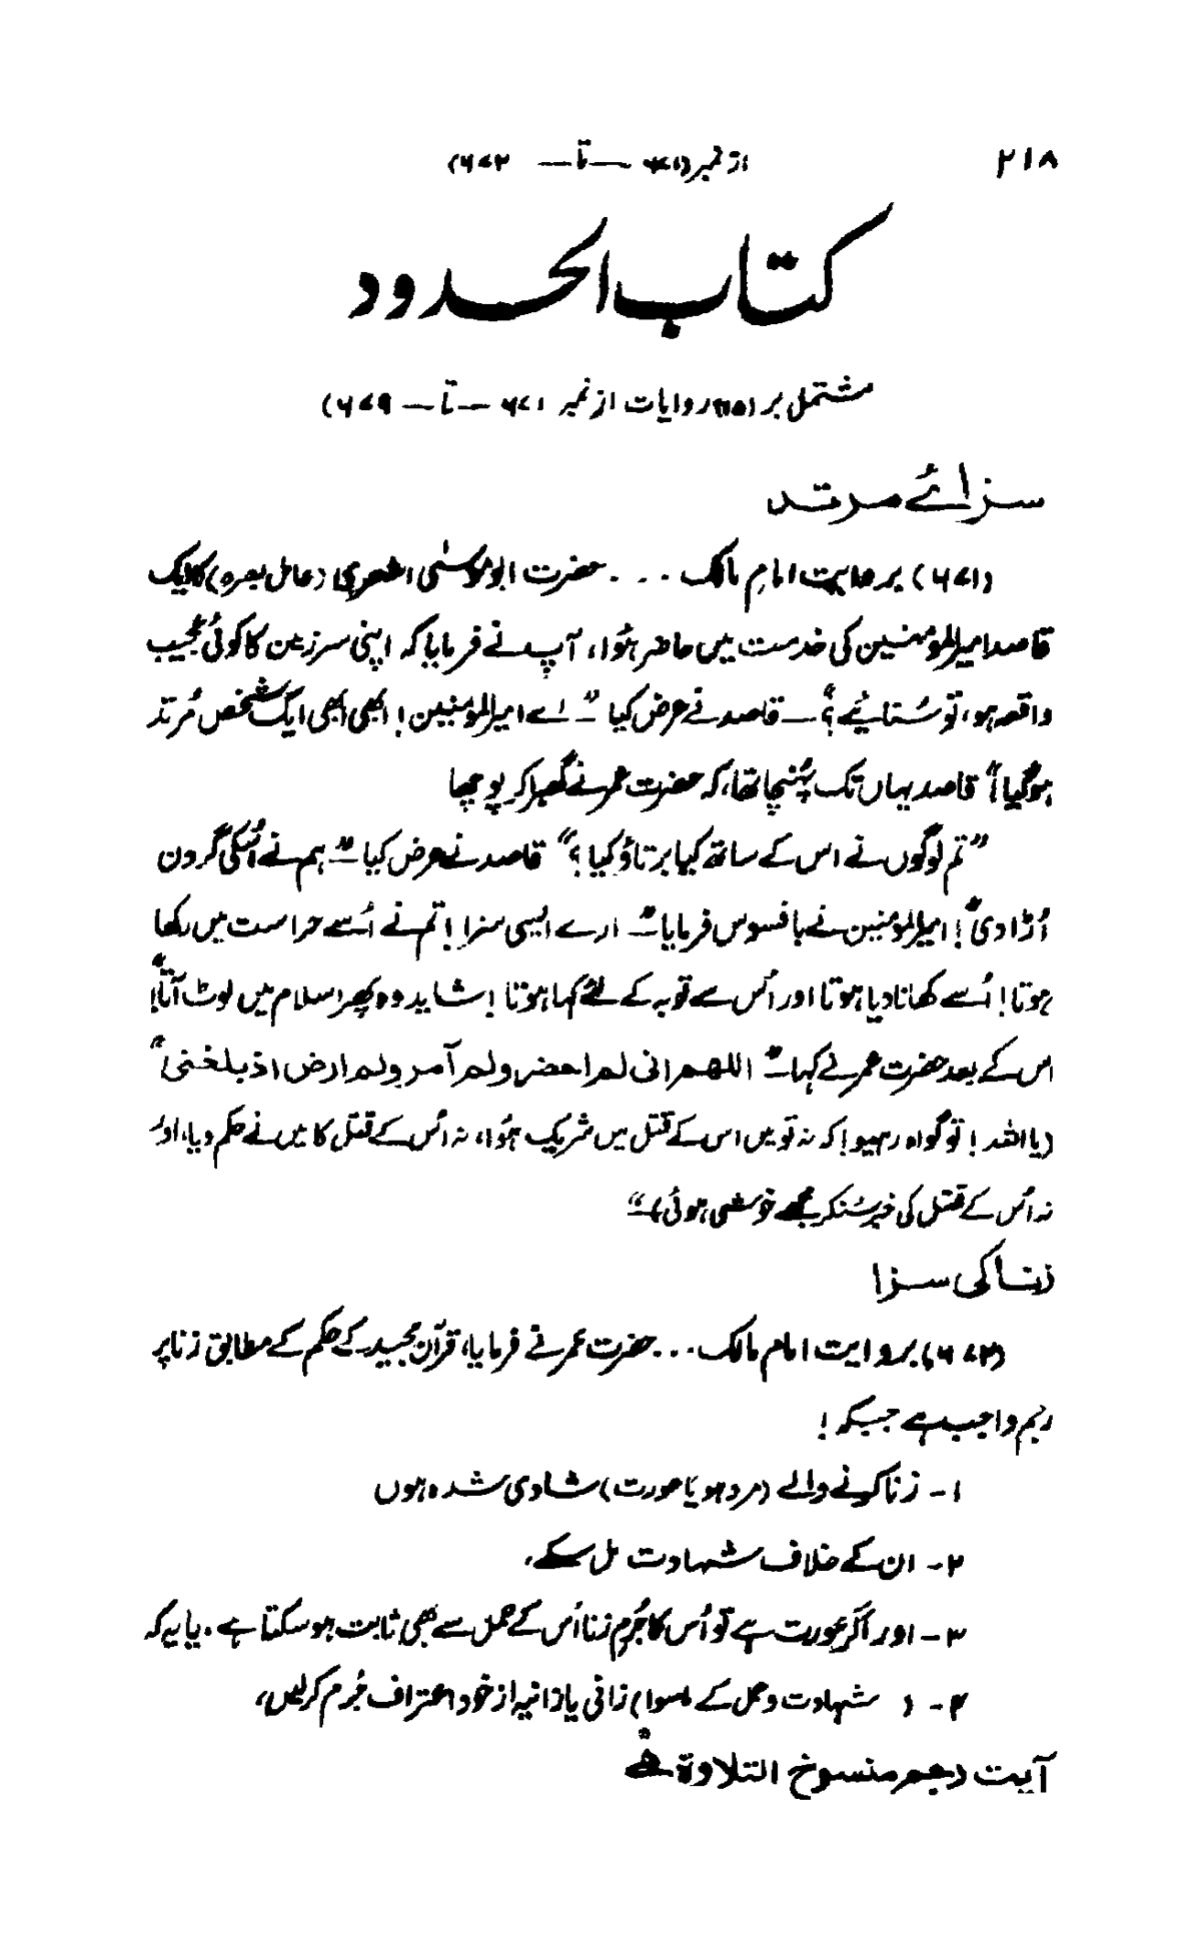 ۲۱۸
از نمبر (۶۷۱ — تا — ۶۷۲)
کتاب الحدود
مشتمل بر (      روایات از نمبر ۶۷۱ — تا — ۶۷۹)
سزائے مرتد
(۶۷۱) بروایت امام مالک ... حضرت ابو موسٰی اشعری (عامل بصرہ) کا ایک
قاصد امیرالمؤمنین کی خدمت میں حاضر ہُوا، آپ نے فرمایا کہ اپنی سرزمین کا کوئی عجیب
واقعہ ہو، تو سُنائیے؟ — قاصد نے عرض کیا ”— اے امیرالمؤمنین! ابھی ابھی ایک شخص مُرتد
ہو گیا“ قاصد یہاں تک پہُنچا تھا، کہ حضرت عمر نے گھبرا کر پوچھا
”تم لوگوں نے اس کے ساتھ کیا برتاؤ کیا؟“ قاصد نے عرض کیا —” ہم نے اُسکی گردن
اُڑا دی“! امیرالمؤمنین نے بافسوس فرمایا —” ارے ایسی سزا! تم نے اُسے حراست میں رکھا
ہوتا! اُسے کھانا دیا ہوتا اور اُس سے توبہ کے لئے کہا ہوتا! شاید وہ پھر اسلام میں لوٹ آتا“!
اس کے بعد حضرت عمر نے کہا —” اللھم انی لم احضر ولم آمر ولم ارض اذ بلغنی“
(یا اللہ! تو گواہ رہیو! کہ نہ تو میں اس کے قتل میں شریک ہُوا، نہ اُس کے قتل کا میں نے حکم دیا، اور
نہ اُس کے قتل کی خبر سُنکر مجھے خوشی ہوئی)—“
زنا کی سزا
(۶۷۲) بروایت امام مالک ... حضرت عمر نے فرمایا، قرآن مجید کے حکم کے مطابق زنا پر
رجم واجب ہے جبکہ!
۱ - زنا کرنے والے (مرد ہو یا عورت) شادی شدہ ہوں
۲ - ان کے خلاف شہادت مل سکے،
۳ - اور اگر عورت ہے تو اُس کا جُرم زنا اُس کے حمل سے بھی ثابت ہو سکتا ہے۔ یا یہ کہ
۴ - ( شہادت و حمل کے ماسوا) زانی یا زانیہ از خود اعتراف جُرم کر لیں،
آیت رجم منسوخ التلاوۃ ہے